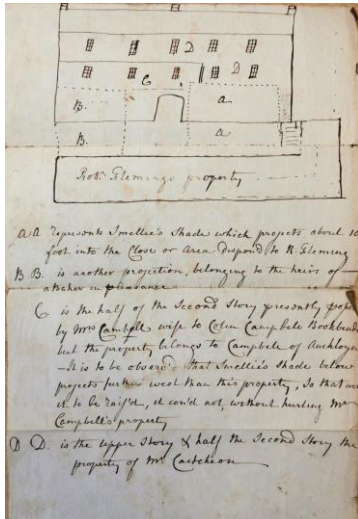 D
D
C
B.
a
B.
a
Robt. Flemings property
a a represents Smellie's Shade which projects about 10
foot into the Close or Area Dispond. to R. Fleming
B B. is another projection, belonging to the heirs of
in pleasance
C is the half of the Second Story presently
by Mrs Campbell wife to Colin Campbell
but the property belongs to Campbell of
- It is to be observ'd that Smellie's Shade below
projects further west than this property, so that
it to be rais'd, it cou'd not, without hurting Mr
Campbell's property
D D. is the upper Story & half the Second Story the
property of Mr